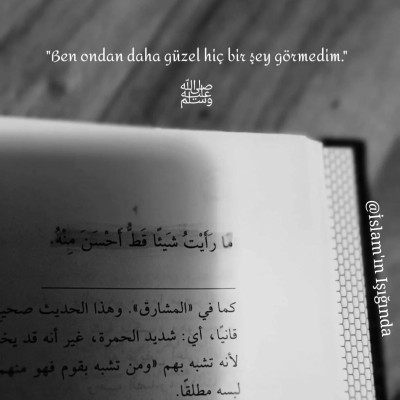 "Ben ondan daha güzel hiç bir şey görmedim."
ﷺ
مَا رَأَيْتُ شَيْئًا قَطُّ أَحْسَنَ مِنْهُ.
كما في «المشارق». وهذا الحديث صحيـ
قانيًا، أي: شديد الحمرة، غير أنه قد يخـ
لأنه تشبه بهم «ومن تشبه بقوم فهو منهم
لبسه مطلقًا.
@İslam'ın Işığında